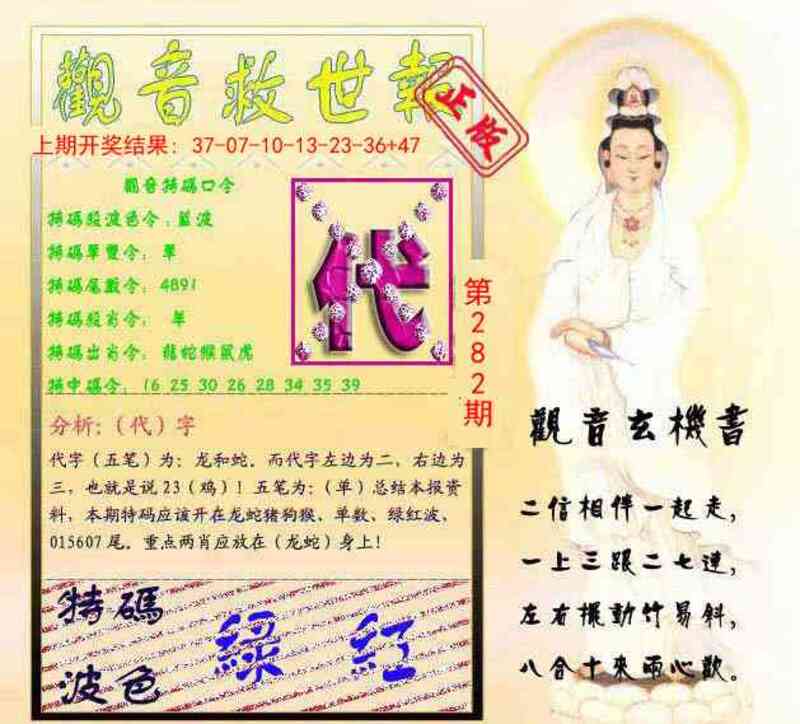 觀音救世報
正版
上期开奖结果：37-07-10-13-23-36+47
觀音特碼口令
特碼殺波色令：藍波
特碼單雙令：單
特碼尾數令：4891
特碼殺肖令：羊
特碼出肖令：龍蛇猴鼠虎
特中碼令：16 25 30 26 28 34 35 39
代
第282期
分析：（代）字
代字（五笔）为：龙和蛇．而代字左边为二，右边为
三，也就是说23（鸡）！五笔为：（单）总结本报资
料，本期特码应该开在龙蛇猪狗猴、单数、绿红波、
015607尾．重点两肖应放在（龙蛇）身上！
特碼
波色
綠 紅
觀音玄機書
二信相伴一起走，
一上三跟二七連，
左右擺動竹易斜，
八合十來兩心歡。